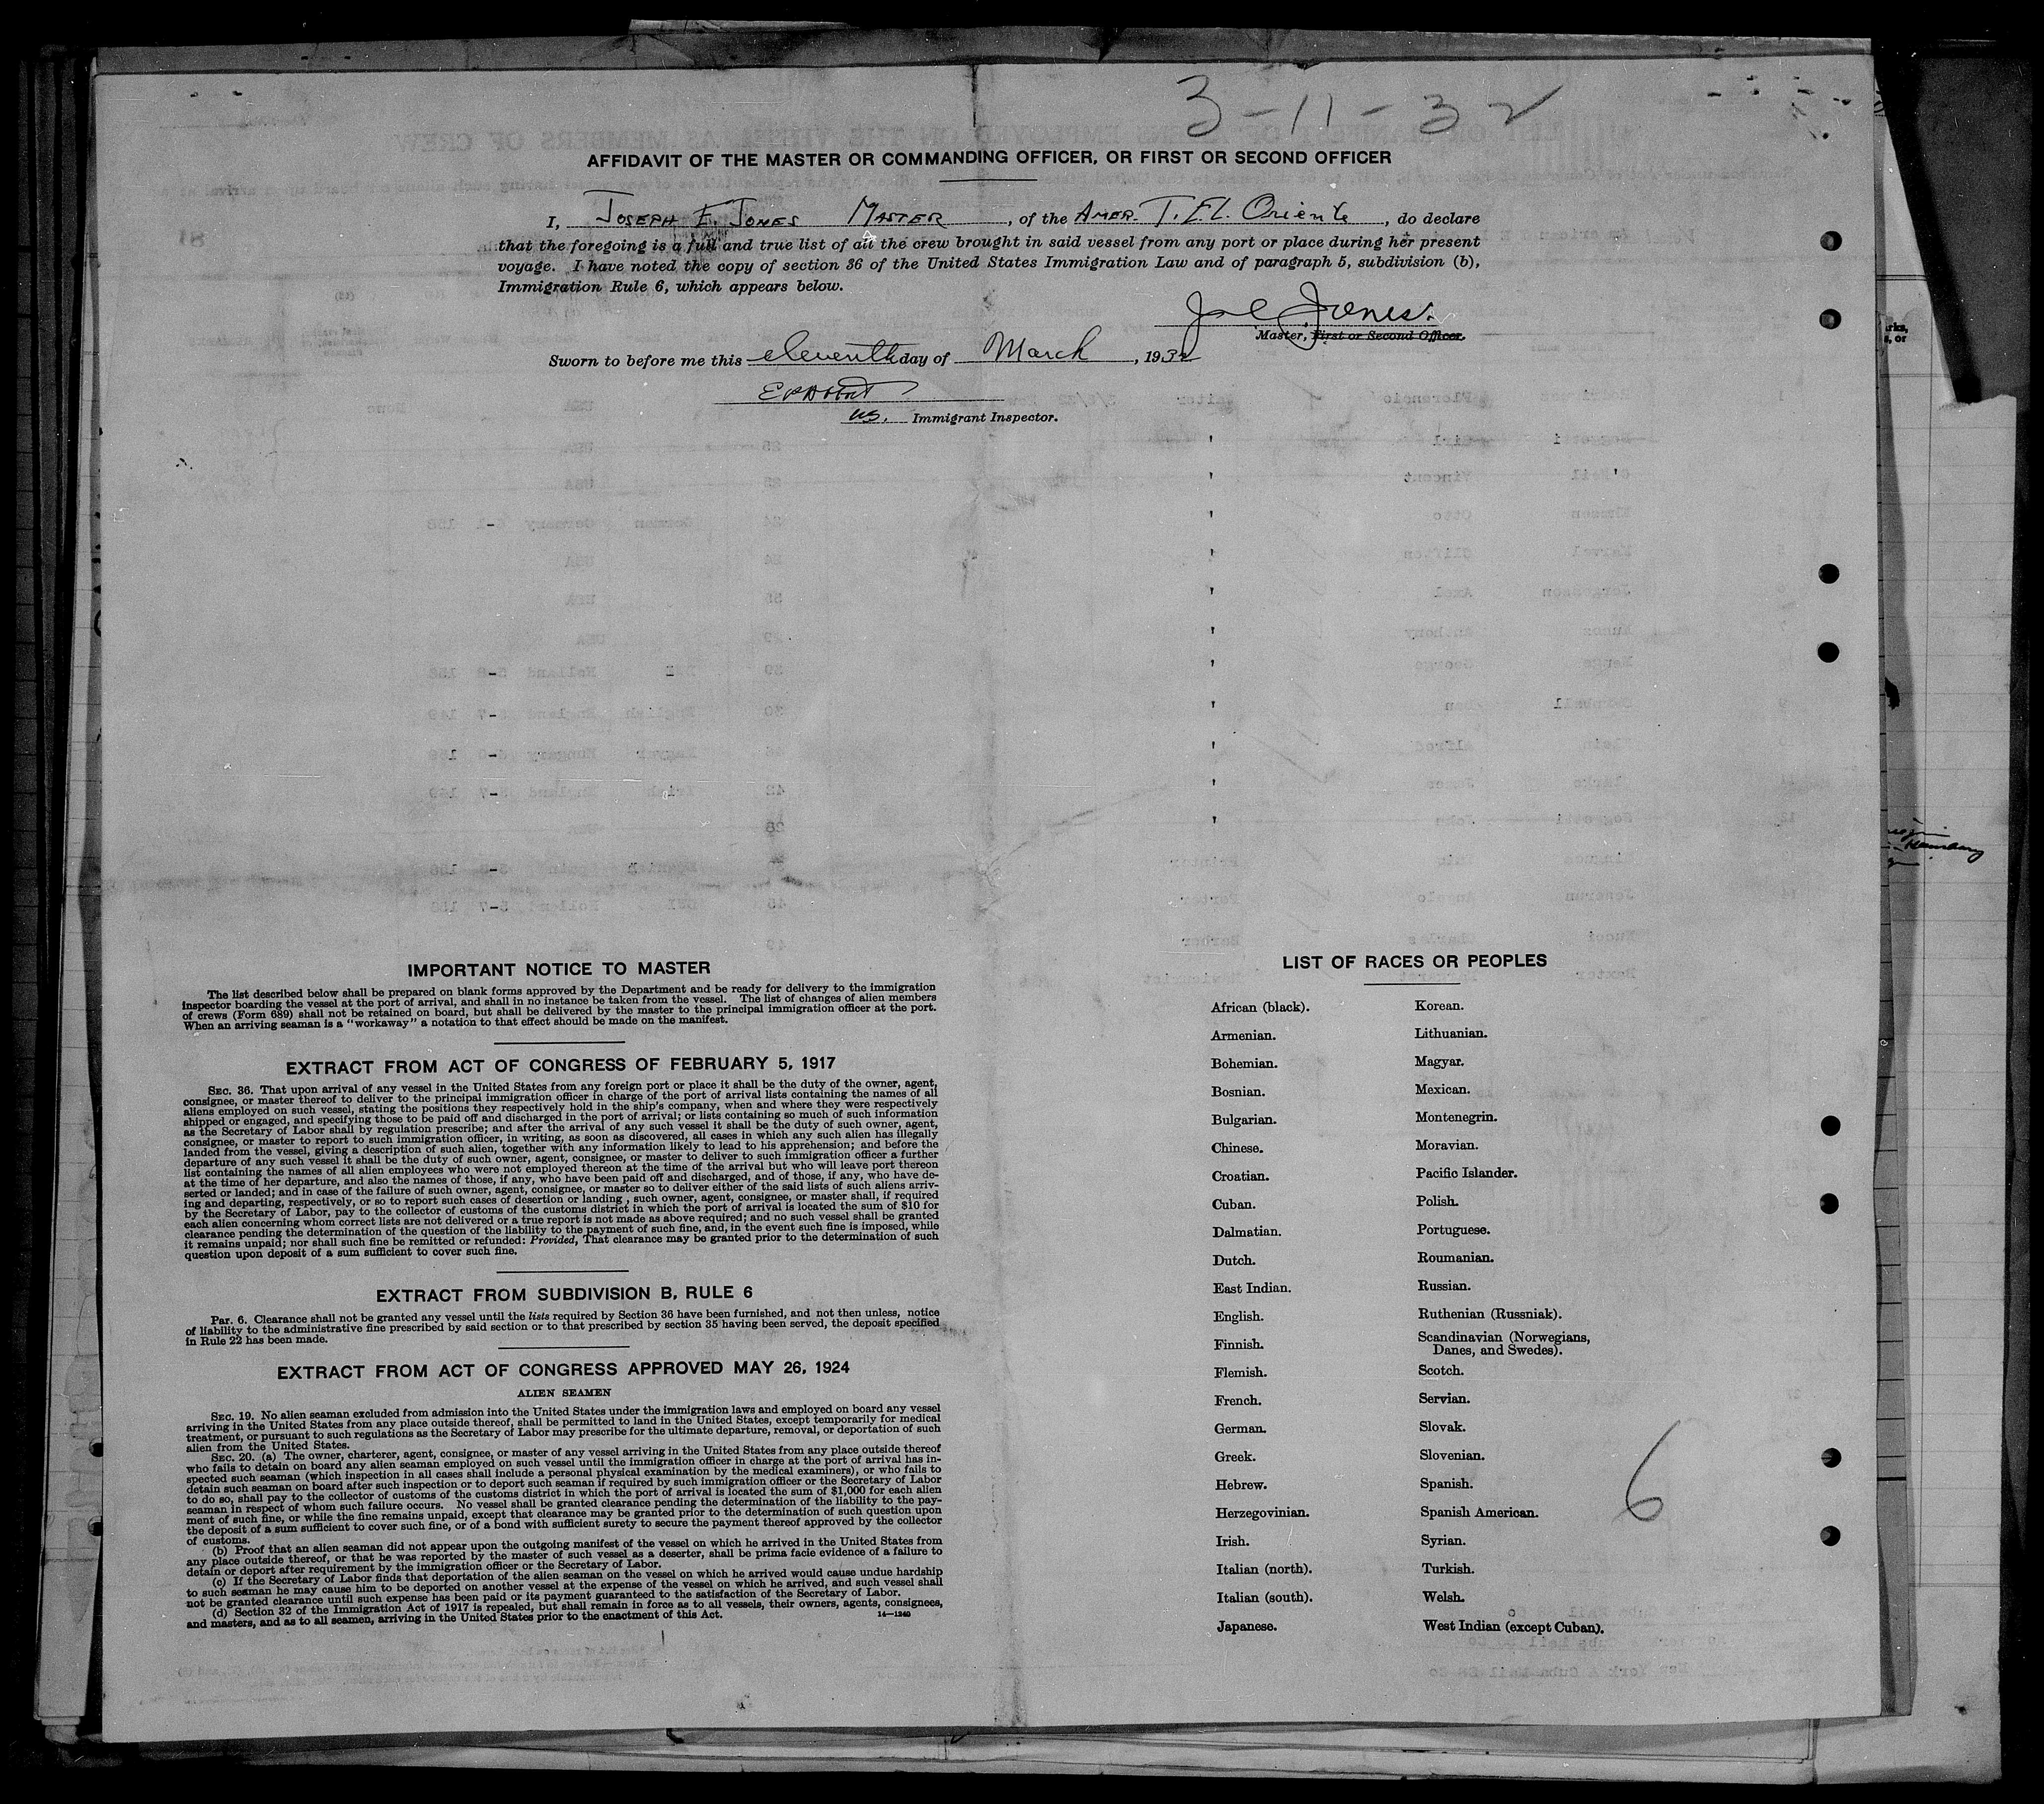 3-11-32
AFFIDAVIT OF THE MASTER OR COMMANDING OFFICER, OR FIRST OR SECOND OFFICER
I, JOSEPH E. JONES MASTER, of the AMER. T.EL. Oriente, do declare
that the foregoing is a full and true list of all the crew brought in said vessel from any port or place during her present
voyage. I have noted the copy of section 36 of the United States Immigration Law and of paragraph 5, subdivision (b),
Immigration Rule 6, which appears below.
Jones.
Master, First or Second Officer.
Sworn to before me this eleventh day of March, 1932
US. Immigrant Inspector.
IMPORTANT NOTICE TO MASTER
The list described below shall be prepared on blank forms approved by the Department and be ready for delivery to the immigration
inspector boarding the vessel at the port of arrival, and shall in no instance be taken from the vessel. The list of changes of alien members
of crews (Form 689) shall not be retained on board, but shall be delivered by the master to the principal immigration officer at the port.
When an arriving seaman is a "workaway" a notation to that effect should be made on the manifest.
EXTRACT FROM ACT OF CONGRESS OF FEBRUARY 5, 1917
SEC. 36. That upon arrival of any vessel in the United States from any foreign port or place it shall be the duty of the owner, agent,
consignee, or master thereof to deliver to the principal immigration officer in charge of the port of arrival lists containing the names of all
aliens employed on such vessel, stating the positions they respectively hold in the ship's company, when and where they were respectively
shipped or engaged, and specifying those to be paid off and discharged in the port of arrival; or lists containing so much of such information
as the Secretary of Labor shall by regulation prescribe; and after the arrival of any such vessel it shall be the duty of such owner, agent,
consignee, or master to report to such immigration officer, in writing, as soon as discovered, all cases in which any such alien has illegally
landed from the vessel, giving a description of such alien, together with any information likely to lead to his apprehension; and before the
departure of any such vessel it shall be the duty of such owner, agent, consignee, or master to deliver to such immigration officer a further
list containing the names of all alien employees who were not employed thereon at the time of the arrival but who will leave port thereon
at the time of her departure, and also the names of those, if any, who have been paid off and discharged, and of those, if any, who have de-
serted or landed; and in case of the failure of such owner, agent, consignee, or master so to deliver either of the said lists of such aliens arriv-
ing and departing, respectively, or so to report such cases of desertion or landing , such owner, agent, consignee, or master shall, if required
by the Secretary of Labor, pay to the collector of customs of the customs district in which the port of arrival is located the sum of $10 for
each alien concerning whom correct lists are not delivered or a true report is not made as above required; and no such vessel shall be granted
clearance pending the determination of the question of the liability to the payment of such fine, and, in the event such fine is imposed, while
it remains unpaid; nor shall such fine be remitted or refunded: Provided, That clearance may be granted prior to the determination of such
question upon deposit of a sum sufficient to cover such fine.
EXTRACT FROM SUBDIVISION B, RULE 6
Par. 6. Clearance shall not be granted any vessel until the lists required by Section 36 have been furnished, and not then unless, notice
of liability to the administrative fine prescribed by said section or to that prescribed by section 35 having been served, the deposit specified
in Rule 22 has been made.
EXTRACT FROM ACT OF CONGRESS APPROVED MAY 26, 1924
ALIEN SEAMEN
SEC. 19. No alien seaman excluded from admission into the United States under the immigration laws and employed on board any vessel
arriving in the United States from any place outside thereof, shall be permitted to land in the United States, except temporarily for medical
treatment, or pursuant to such regulations as the Secretary of Labor may prescribe for the ultimate departure, removal, or deportation of such
alien from the United States.
SEC. 20. (a) The owner, charterer, agent, consignee, or master of any vessel arriving in the United States from any place outside thereof
who fails to detain on board any alien seaman employed on such vessel until the immigration officer in charge at the port of arrival has in-
spected such seaman (which inspection in all cases shall include a personal physical examination by the medical examiners), or who fails to
detain such seaman on board after such inspection or to deport such seaman if required by such immigration officer or the Secretary of Labor
to do so, shall pay to the collector of customs of the customs district in which the port of arrival is located the sum of $1,000 for each alien
seaman in respect of whom such failure occurs. No vessel shall be granted clearance pending the determination of the liability to the pay-
ment of such fine, or while the fine remains unpaid, except that clearance may be granted prior to the determination of such question upon
the deposit of a sum sufficient to cover such fine, or of a bond with sufficient surety to secure the payment thereof approved by the collector
of customs.
(b) Proof that an alien seaman did not appear upon the outgoing manifest of the vessel on which he arrived in the United States from
any place outside thereof, or that he was reported by the master of such vessel as a deserter, shall be prima facie evidence of a failure to
detain or deport after requirement by the immigration officer or the Secretary of Labor.
(c) If the Secretary of Labor finds that deportation of the alien seaman on the vessel on which he arrived would cause undue hardship
to such seaman he may cause him to be deported on another vessel at the expense of the vessel on which he arrived, and such vessel shall
not be granted clearance until such expense has been paid or its payment guaranteed to the satisfaction of the Secretary of Labor.
(d) Section 32 of the Immigration Act of 1917 is repealed, but shall remain in force as to all vessels, their owners, agents, consignees,
and masters, and as to all seamen, arriving in the United States prior to the enactment of this Act. 14—1240
LIST OF RACES OR PEOPLES
African (black). Korean.
Armenian. Lithuanian.
Bohemian. Magyar.
Bosnian. Mexican.
Bulgarian. Montenegrin.
Chinese. Moravian.
Croatian. Pacific Islander.
Cuban. Polish.
Dalmatian. Portuguese.
Dutch. Roumanian.
East Indian. Russian.
English. Ruthenian (Russniak).
Finnish. Scandinavian (Norwegians,
Danes, and Swedes).
Flemish. Scotch.
French. Servian.
German. Slovak.
Greek. Slovenian.
Hebrew. Spanish.
Herzegovinian. Spanish American.
Irish. Syrian.
Italian (north). Turkish.
Italian (south). Welsh.
Japanese. West Indian (except Cuban).
6